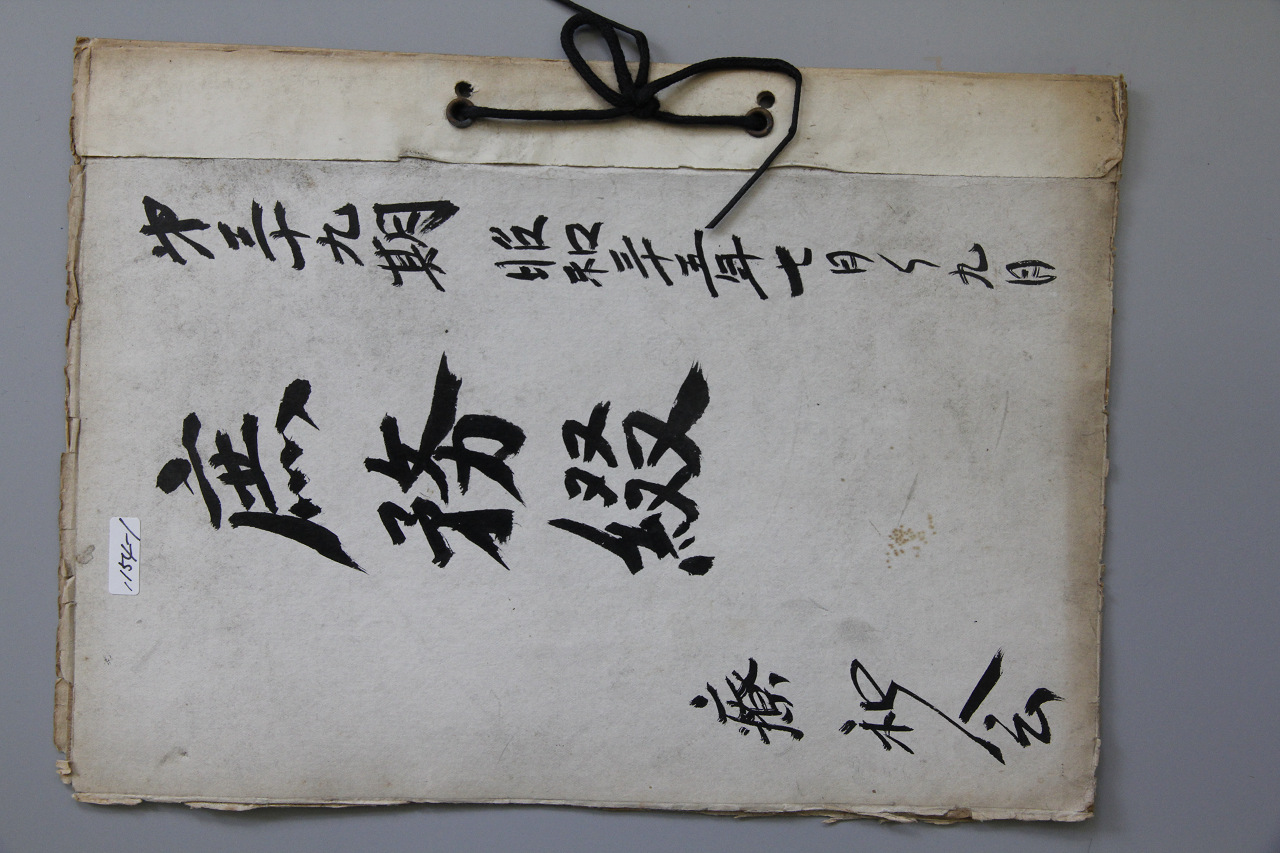 第三十九期 昭和三十五年七月〜九月
庶務綴
療祝会
1154-1